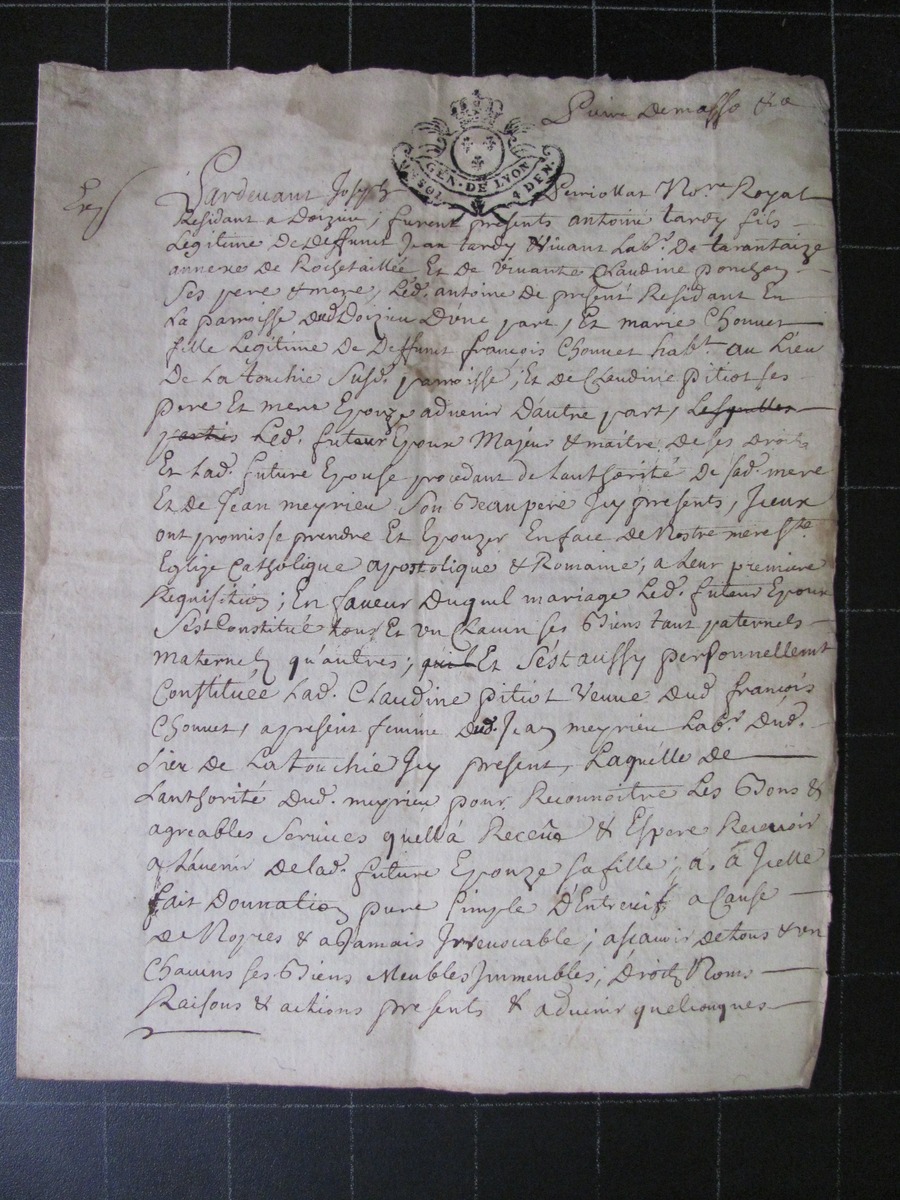 Pierre Demasso &a
GEN. DE LYON
SOL 4 DEN.
Pardevant Joseph Perriollat No.re Royal
Residant a Doizieu ; furent presents antoine tardy fils
Legitime De deffunt Jean tardy Vivant Lab.r De tarantaize
annexe de Rochetaillée Et de vivante Claudine ponchon
Ses pere & mere, Led. antoine de present Residant En
La parroisse dud Doizieu D'une part, Et marie Chouvet
fille Legitime De Deffunt françois Chouvet hab.t au Lieu
De La touchie Susd. parroisse, Et de Claudine pitiot ses
pere Et mere Epouze advenir D'autre part, Lesquelles
parties Led. futeur Epoux Majeur & maitre de ses Droits
Et Lad. future Epouse procedant de Lauthorité De sad. mere
Et de Jean meyrieu Son Beaupere Icy presents, Iceux
ont promis se prendre Et Epouzer En face de Nostre mere S.te
Eglize Catholique apostolique & Romaine, a Leur premiere
Requisition ; En faveur Duquel mariage Led. futeur Epoux
S'est Constitué tous Et un Chacun ses Biens tant paternels
maternels qu'autres, Et S'est aussy personnellemt
Constituée Lad. Claudine pitiot Veuve dud françois
Chouvet, a present femme dud. Jean meyrieu Lab.r dud.
Lieu de La touchie Icy present, Laquelle de
Lauthorité dud. meyrieu pour Reconnoitre Les Bons &
agreables Services quell'a Receue & Espere Recevoir
a Lavenir de lad. future Epouze sa fille ; a, a Icelle
fait Donnation pure simple D'Entrevifs a Cause
de Nopces & a Jamais Irrevocable ; ascavoir de tous & un
Chacuns ses Biens Meubles Immeubles, Droits Noms
Raisons & actions presents & advenir quelconques